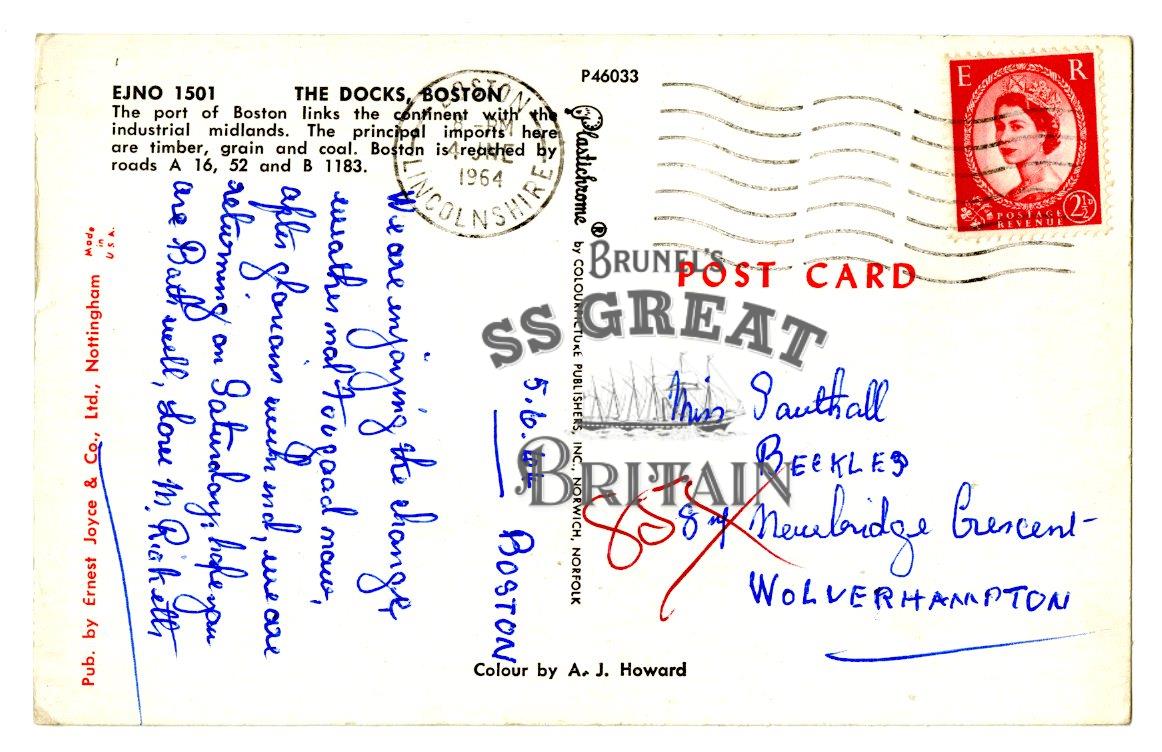 P46033
EJNO 1501 THE DOCKS, BOSTON
The port of Boston links the continent with the
industrial midlands. The principal imports here
are timber, grain and coal. Boston is reached by
roads A 16, 52 and B 1183.
BOSTON
8 - PM
4 JNE
1964
LINCOLNSHIRE
E R
POSTAGE
REVENUE
2½D
Plastichrome ® by COLOURPICTURE PUBLISHERS, INC., NORWICH, NORFOLK
POST CARD
BRUNEL'S
SS GREAT
BRITAIN
BOSTON 5.6.64
We are enjoying the change,
weather not too good now,
after glorious week end, we are
returning on Saturday, hope you
are Both well, Love M. Ricketts
Miss Southall
BECKLES
Newbridge Crescent
WOLVERHAMPTON
Pub. by Ernest Joyce & Co., Ltd., Nottingham
Made
in
U S A.
Colour by A. J. Howard